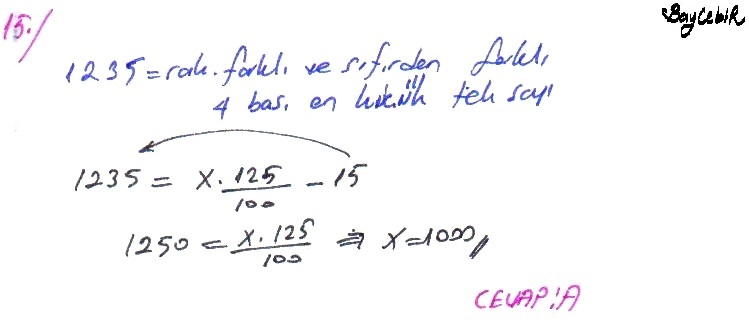 BayCebiR
15./
1235 = rak. farklı ve sıfırdan farklı
4 bas. en küçük tek sayı
1235 = x. 125/100 - 15
1250 = x. 125/100 ⇒ x=1000//
CEVAP: A